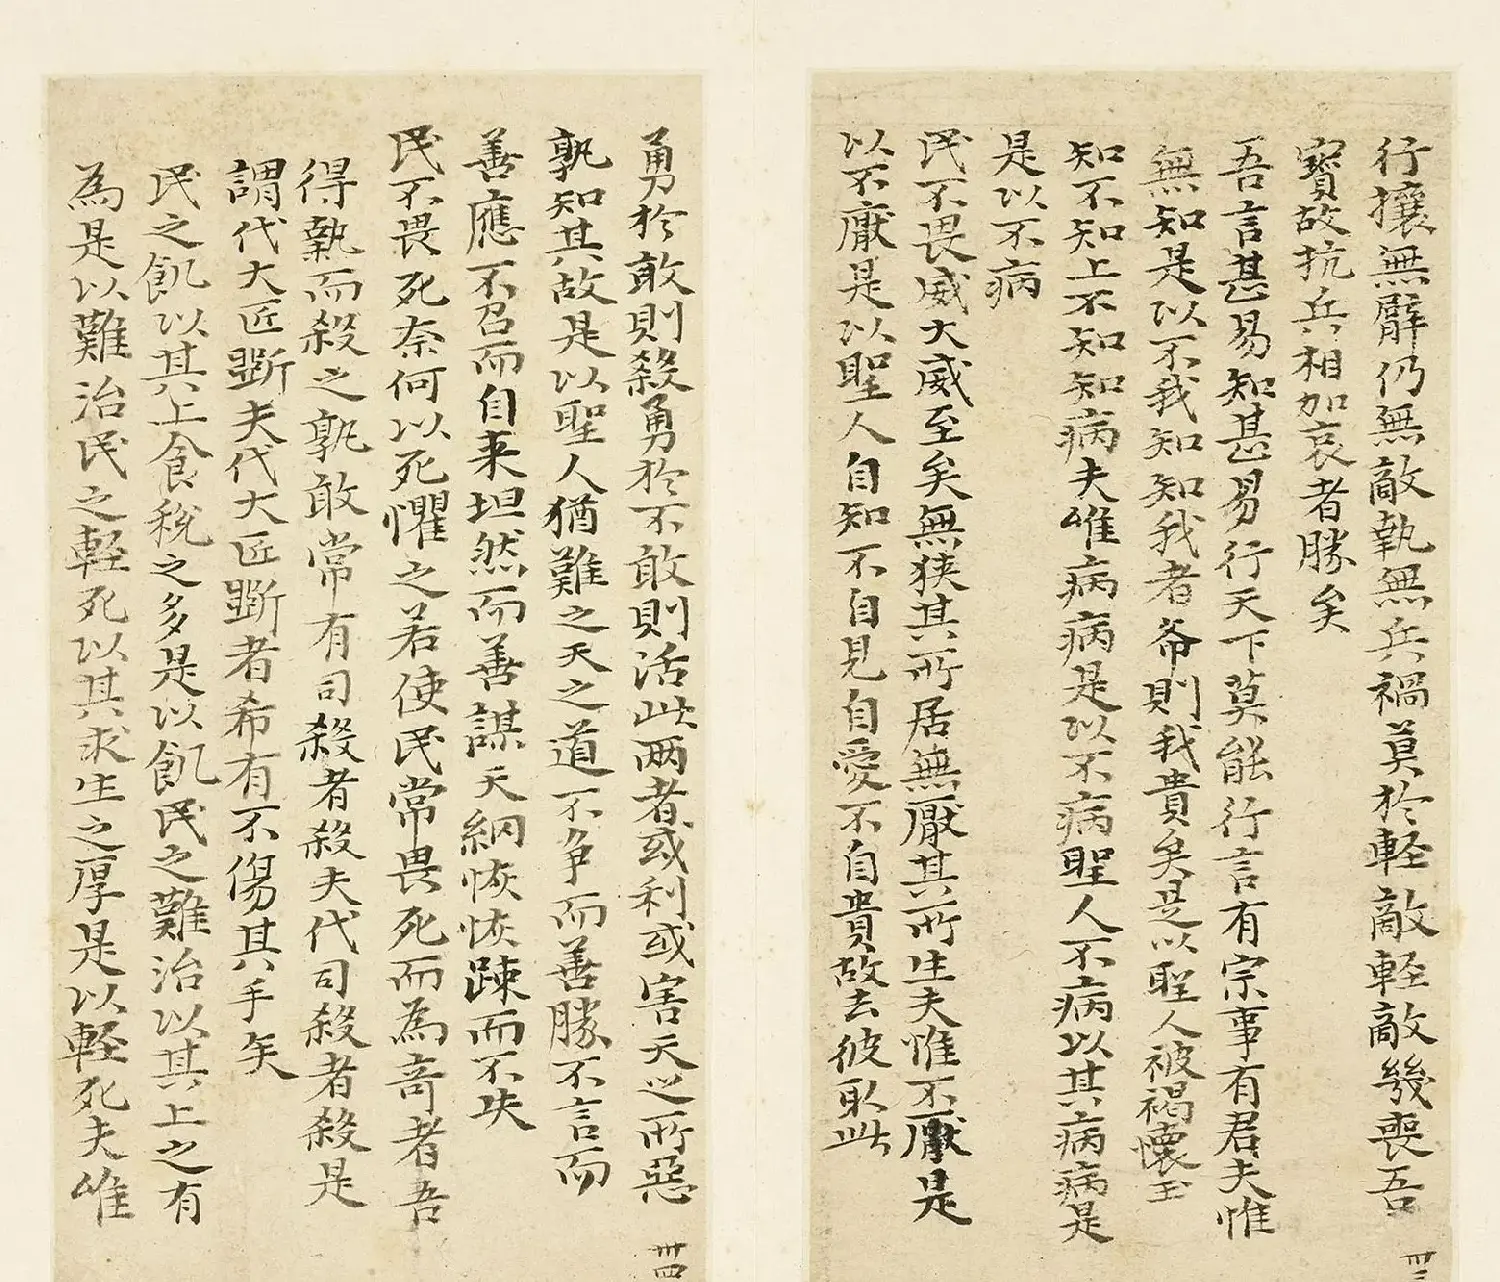 行攘無臂仍無敵執無兵禍莫於輕敵輕敵幾喪吾
寳故抗兵相加哀者勝矣
吾言甚易知甚易行天下莫能行言有宗事有君夫惟
無知是以不我知知我者希則我貴矣是以聖人被褐懷玉
知不知上不知知病夫唯病病是以不病聖人不病以其病病是
是以不病
民不畏威大威至矣無狹其所居無厭其所生夫惟不厭是
以不厭是以聖人自知不自見自愛不自貴故去彼取此
勇於敢則殺勇於不敢則活此两者或利或害天之所惡
孰知其故是以聖人猶難之天之道不争而善勝不言而
善應不召而自来坦然而善謀天網恢恢踈而不失
民不畏死奈何以死懼之若使民常畏死而為奇者吾
得執而殺之孰敢常有司殺者殺夫代司殺者殺是
謂代大匠斲夫代大匠斲者希有不傷其手矣
民之飢以其上食稅之多是以飢民之難治以其上之有
為是以難治民之輕死以其求生之厚是以輕死夫唯
卌四